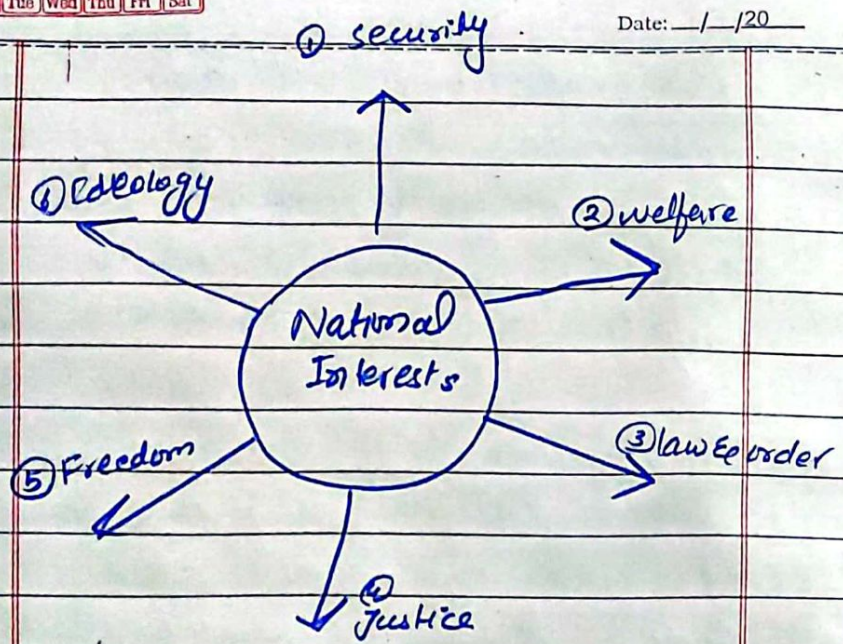 Tue Wed Thu Fri Sat
Date: / /20
① security.
⑥ Ideology
② welfare
National
Interests
③ law & order
⑤ Freedom
④
Justice